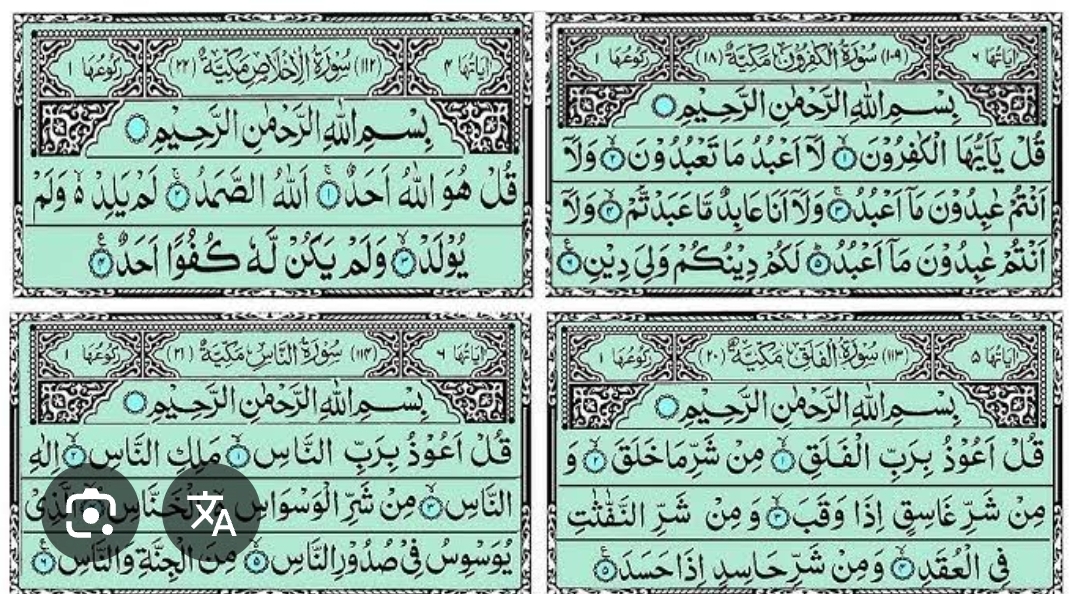 اٰيَاتُهَا ٦ (١٠٩) سُوْرَةُ الْكٰفِرُوْنَ مَكِّيَّةٌ (١٨) رُكُوْعُهَا ١
بِسْمِ اللّٰهِ الرَّحْمٰنِ الرَّحِيْمِ
قُلْ يٰٓاَيُّهَا الْكٰفِرُوْنَ ۙ﴿١﴾ لَاۤ اَعْبُدُ مَا تَعْبُدُوْنَ ۙ﴿٢﴾ وَلَاۤ
اَنْتُمْ عٰبِدُوْنَ مَاۤ اَعْبُدُ ۚ﴿٣﴾ وَلَاۤ اَنَا عَابِدٌ مَّا عَبَدْتُّمْ ۙ﴿٤﴾ وَلَاۤ
اَنْتُمْ عٰبِدُوْنَ مَاۤ اَعْبُدُ ؕ﴿٥﴾ لَكُمْ دِيْنُكُمْ وَلِيَ دِيْنِ ﴿٦﴾
اٰيَاتُهَا ٤ (١١٢) سُوْرَةُ الْاِخْلَاصِ مَكِّيَّةٌ (٢٢) رُكُوْعُهَا ١
بِسْمِ اللّٰهِ الرَّحْمٰنِ الرَّحِيْمِ
قُلْ هُوَ اللّٰهُ اَحَدٌ ۚ﴿١﴾ اَللّٰهُ الصَّمَدُ ۚ﴿٢﴾ لَمْ يَلِدْ ۙ۬ وَلَمْ
يُوْلَدْ ۙ﴿٣﴾ وَلَمْ يَكُنْ لَّهٗ كُفُوًا اَحَدٌ ﴿٤﴾
اٰيَاتُهَا ٥ (١١٣) سُوْرَةُ الْفَلَقِ مَكِّيَّةٌ (٢٠) رُكُوْعُهَا ١
بِسْمِ اللّٰهِ الرَّحْمٰنِ الرَّحِيْمِ
قُلْ اَعُوْذُ بِرَبِّ الْفَلَقِ ۙ﴿١﴾ مِنْ شَرِّ مَا خَلَقَ ۙ﴿٢﴾ وَ
مِنْ شَرِّ غَاسِقٍ اِذَا وَقَبَ ۙ﴿٣﴾ وَ مِنْ شَرِّ النَّفّٰثٰتِ
فِی الْعُقَدِ ۙ﴿٤﴾ وَ مِنْ شَرِّ حَاسِدٍ اِذَا حَسَدَ ﴿٥﴾
اٰيَاتُهَا ٦ (١١٤) سُوْرَةُ النَّاسِ مَكِّيَّةٌ (٢١) رُكُوْعُهَا ١
بِسْمِ اللّٰهِ الرَّحْمٰنِ الرَّحِيْمِ
قُلْ اَعُوْذُ بِرَبِّ النَّاسِ ۙ﴿١﴾ مَلِكِ النَّاسِ ۙ﴿٢﴾ اِلٰهِ
النَّاسِ ۙ﴿٣﴾ مِنْ شَرِّ الْوَسْوَاسِ الْخَنَّاسِ الَّذِیْ
يُوَسْوِسُ فِیْ صُدُوْرِ النَّاسِ ۙ﴿٥﴾ مِنَ الْجِنَّةِ وَالنَّاسِ ﴿٦﴾